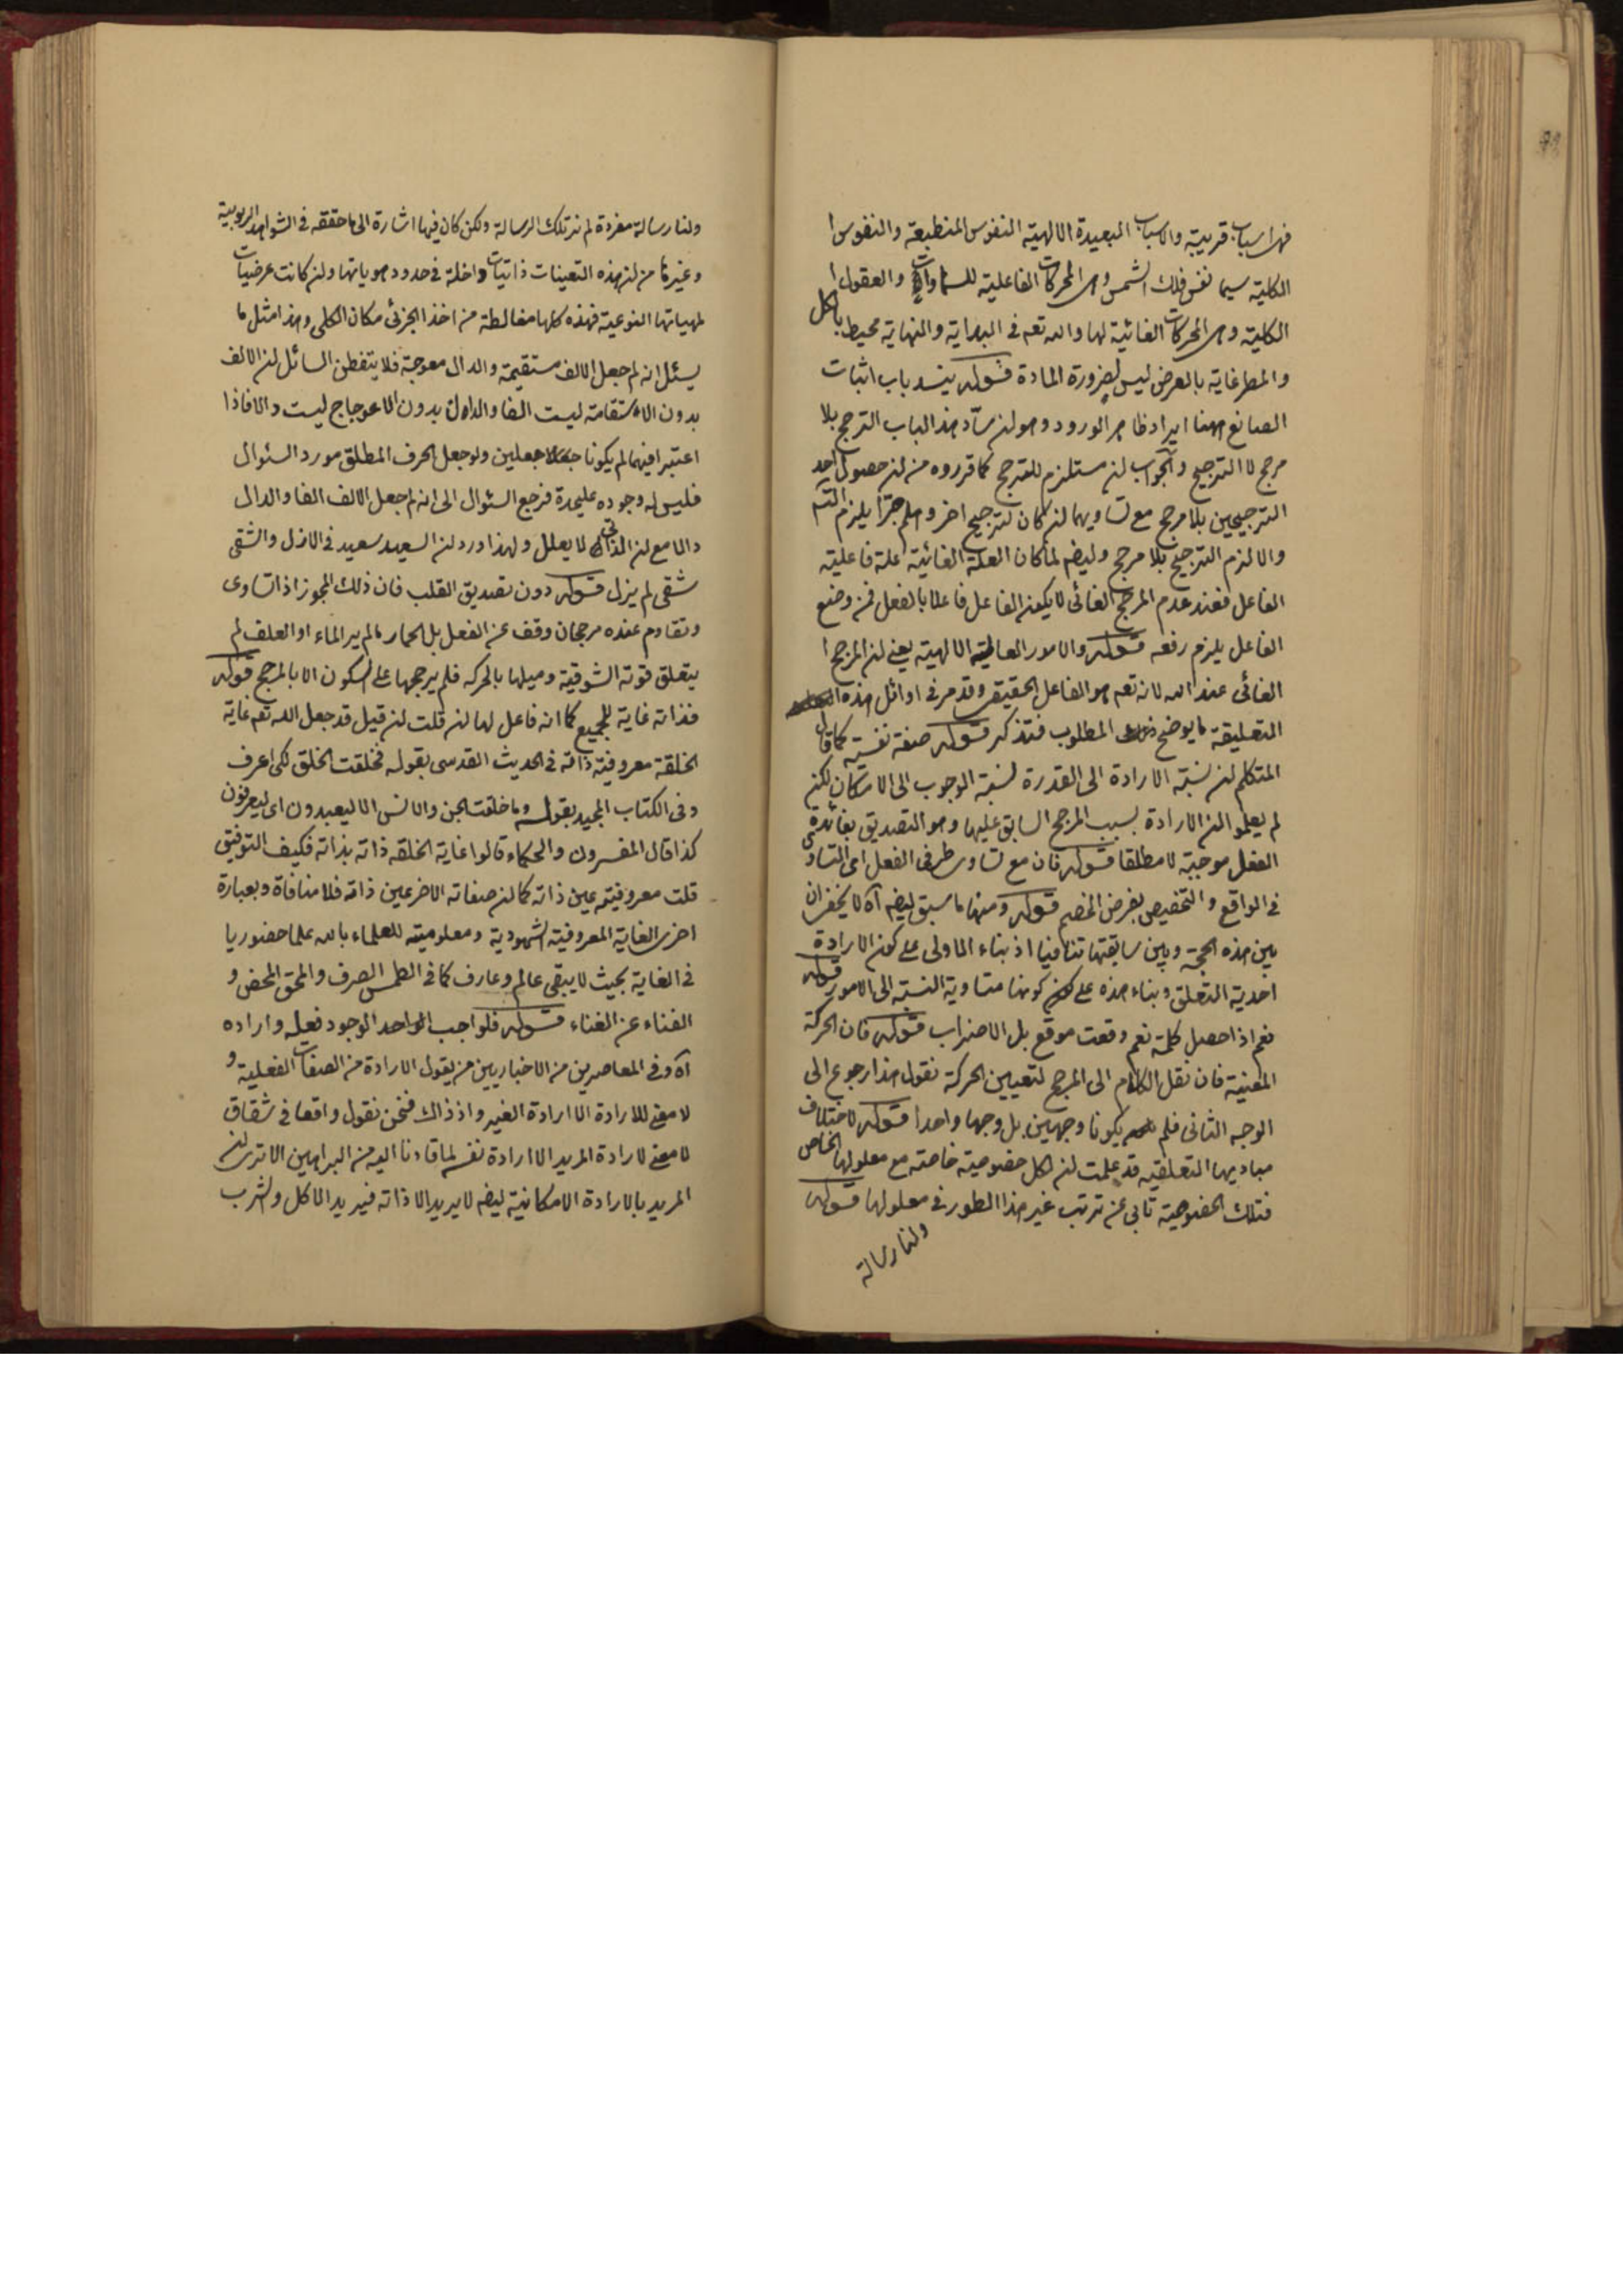 فهى اسباب قريبة والاسباب البعيدة الالهية النفوس المنطبعة والنفوس ا
الكلية سيما نفس فلك الشمس وهى المحركات الفاعلية للسماوات والعقول ا
الكلية وهى المحركات الغائية لها والله تعه فى البداية والنهاية محيط بالكل
والمطر غاية بالعرض ليس لضرورة المادة قوله ينسد باب اثبات
الصانع ههنا ايراد ظاهر الورود وهو ان ساد هذا الباب الترجح بلا
مرجح لا الترجيح والجواب انه مستلزم للترجح كما قرروه من ان حصول احد
الترجيحين بلا مرجح مع تساويهما ان كان لترجيح اخر وهلم جرا يلزم التسه
والا لزم الترجيح بلا مرجح وايضه لما كان العلة الغائية علة فاعلية
الفاعل فعند عدم المرجح الغائى لا يكون الفاعل فاعلا بالفعل فمن وضع
الفاعل يلزم رفعه قوله والامور العالية الالهية يعنى ان المرجح ا
الغائى عند الله لانه تعه هو الفاعل الحقيقى وقد مر فى اوائل هذه
التعليقة ما يوضح المطلوب فتذكر قوله صفة نفسية كما قال
المتكلم ان نسبة الارادة الى القدرة نسبة الوجوب الى الامكان لكن
لم يعلموا ان الارادة بسبب المرجح السابق عليها وهو التصديق بفائدة
الفعل موجبة لا مطلقا قوله فان مع تساوى طرفى الفعل اى التساوى
فى الواقع والتخصيص بفرض الخصم قوله ومنها ما سبق ايضه آه لا يخفى ان
بين هذه الحجة وبين سابقتها تنافيا اذ بناء الاولى على كون الارادة
احدية التعلق وبناء هذه على كونها متساوية النسبة الى الامور قوله
نعم اذا حصل كلمة نعم وقعت موقع بل الاضراب قوله فان الحركة
المعينة فان نقل الكلام الى المرجح لتعيين الحركة نقول هذا رجوع الى
الوجه الثانى فلم يكونا وجهين بل وجها واحدا قوله لاختلاف
مباديها التعلقيه قد علمت ان لكل خصوصية خاصة مع معلولها الخاص
فتلك الخصوصية تابى عن ترتب غير هذا الطور فى معلولها قوله
ولنا رسالة
ولنا رسالة مفردة لم نر تلك الرسالة ولكن كان فيها اشارة الى ما حققه فى الشواهد الربوبية
وغيرها من ان هذه التعينات ذاتيات داخلة فى حدود هوياتها وان كانت عرضيات
لمهياتها النوعية فهذه كلها مغالطة من اخذ الجزئى مكان الكلى وهذا مثل ما
يسئل انه لم جعل الالف مستقيمة والدال معوجة فلا يتفطن السائل ان الالف
بدون الاستقامة ليست الفا والدال بدون الاعوجاج ليست دالا فاذا
اعتبرا فيهما لم يكونا جعلين ولو جعل الحرف المطلق مورد السئوال
فليس له وجوده عليحدة فرجع السئوال الى انه لم جعل الالف الفا والدال
دالا مع ان الذاتى لا يعلل ولهذا ورد ان السعيد سعيد فى الازل والشقى
شقى لم يزل قوله دون تصديق القلب فان ذلك المجوز اذا تساوى
وتقاوم عنده مرجحان وقف عن الفعل بل الحمار ما لم ير الماء او العلف لم
يتعلق قوته الشوقية وميلها بالحركه فلم يرجحها على السكون الا بالمرجح قوله
فذاته غاية للجميع كما انه فاعل لها ان قلت ان قيل قد جعل الله تعه غاية
الخلقة معروفيته ذاته فى الحديث القدسى بقوله فخلقت الخلق لكى اعرف
وفى الكتاب المجيد بقوله وما خلقت الجن والانس الا ليعبدون اى ليعرفون
كذا قال المفسرون والحكماء قالوا غاية الخلقه ذاته بذاته فكيف التوفيق
قلت معروفيته عين ذاته كما ان صفاته الاخر عين ذاته فلا منافاة وبعبارة
اخرى الغاية المعروفية الشهودية ومعلوميته للعلماء بالله علما حضوريا
فى الغاية بحيث لا يبقى عالم وعارف كما فى الطمس الصرف والمحق المحض و
الفناء عن الفناء قوله فلواجب الواحد الوجود فعله واراده
آه وفى المعاصرين من الاخباريين من يقول الارادة من الصفات الفعلية و
لا معنى للارادة الا ارادة الغير واذ ذاك فنحن نقول واقعا فى شقاق
لا معنى لارادة المريد الا ارادة نفسه لما قادنا اليه من البراهين الا ترى ان
المريد بالارادة الامكانية ايضه لا يريد الا ذاته فيريد الاكل والشرب